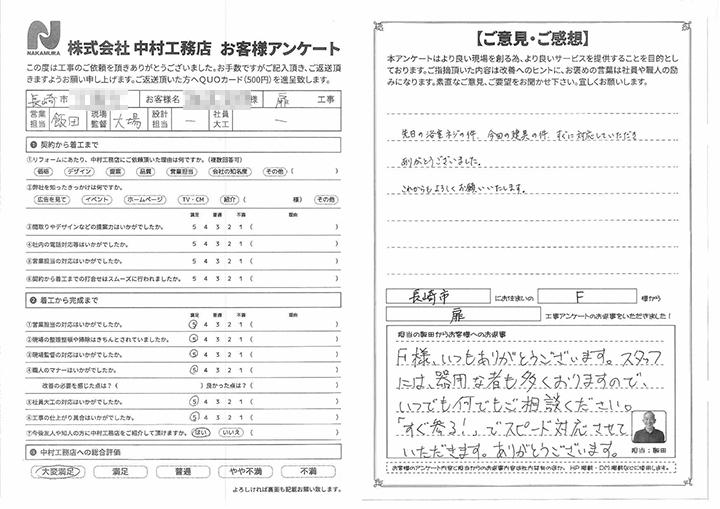 NAKAMURA
株式会社 中村工務店 お客様アンケート
この度は工事のご依頼を頂きありがとうございました。お手数ですがご記入頂き、ご返送頂
きますようお願い申し上げます。ご返送頂いた方へQUOカード(500円)を進呈致します。
長崎 市 お客様名 様 扉 工事
営業担当 飯田 現場監督 大場 設計担当 ー 社員大工 ー
❶ 契約から着工まで
①リフォームにあたり、中村工務店にご依頼頂いた理由は何ですか?(複数回答可)
価格 デザイン 提案 品質 営業担当 会社の知名度 その他 ( )
②弊社を知ったきっかけは何ですか?
広告を見て イベント ホームページ TV・CM 紹介 ( 様) その他
満足 普通 不満 理由
③間取りやデザインなどの提案力はいかがでしたか。 5 4 3 2 1 ( )
④社内の電話対応等はいかがでしたか。 5 4 3 2 1 ( )
⑤営業担当の対応はいかがでしたか。 5 4 3 2 1 ( )
⑥契約から着工までの打合せはスムーズに行われましたか。 5 4 3 2 1 ( )
❷ 着工から完成まで
満足 普通 不満 理由
①営業担当の対応はいかがでしたか。 5 4 3 2 1 ( )
②現場の整理整頓や掃除はきちんとされていましたか。 5 4 3 2 1 ( )
③現場監督の対応はいかがでしたか。 5 4 3 2 1 ( )
④職人のマナーはいかがでしたか。 5 4 3 2 1 ( )
改善の必要を感じた点は?( ) 良かった点は?( )
⑤社員大工の対応はいかがでしたか。 5 4 3 2 1 ( )
⑥工事の仕上がり具合はいかがでしたか。 5 4 3 2 1 ( )
⑦今後友人や知人の方に中村工務店をご紹介して頂けますか。 はい いいえ ( )
❸ 中村工務店への総合評価
大変満足 満足 普通 やや不満 不満
よろしければ裏面も記載お願い致します。
【ご意見・ご感想】
本アンケートはより良い現場を創る為、より良いサービスを提供することを目的とし
ております。ご指摘頂いた内容は改善へのヒントに、お褒めの言葉は社員や職人の励
みになります。素直なご意見、ご要望をお聞かせ下さい。宜しくお願いします。
先日の浴室ネジの件、今回の建具の件、すぐに対応していただき
ありがとうございました。
これからもよろしくお願いいたします。
長崎市 にお住まいの F 様から
扉 工事アンケートのお返事をいただきました!
担当の飯田からお客様へのお返事
F様、いつもありがとうございます。スタッフ
には、器用な者も多くおりますので、
いつでも何でもご相談ください。
「すぐ参る!」でスピード対応させて
いただきます。ありがとうございます。
担当:飯田